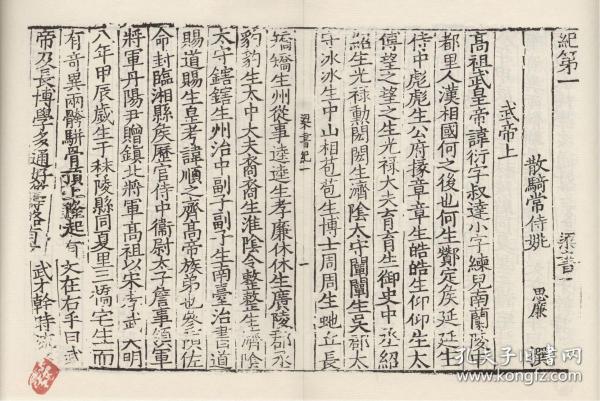 紀第一 梁書一
散騎常侍姚 思廉 撰
武帝上
高祖武皇帝諱衍字叔達小字練兒南蘭陵中
都里人漢相國何之後也何生酇定侯延延生
侍中彪彪生公府掾章章生皓皓生仰仰生太
傅望之望之生光祿大夫育育生御史中丞紹
紹生光祿勳閎閎生濟陰太守闡闡生吳郡太
守冰冰生中山相苞苞生博士周周生虵丘長
梁書紀一
矯矯生州從事逵逵生孝廉休休生廣陵郡丞
豹豹生太中大夫裔裔生淮陰令整整生濟陰
太守鎋鎋生州治中副子副子生南臺治書道
賜道賜生皇考諱順之齊高帝族弟也參預佐
命封臨湘縣侯歷官侍中衛尉太子詹事領軍
將軍丹陽尹贈鎮北將軍高祖以宋孝武大明
八年甲辰歲生于秣陵縣同夏里三橋宅生而
有奇異兩髂駢骨頂上隆起有文在右手曰武
帝及長博學多通好籌略 武才幹時流
孔夫子旧书网
www.kongfz.com